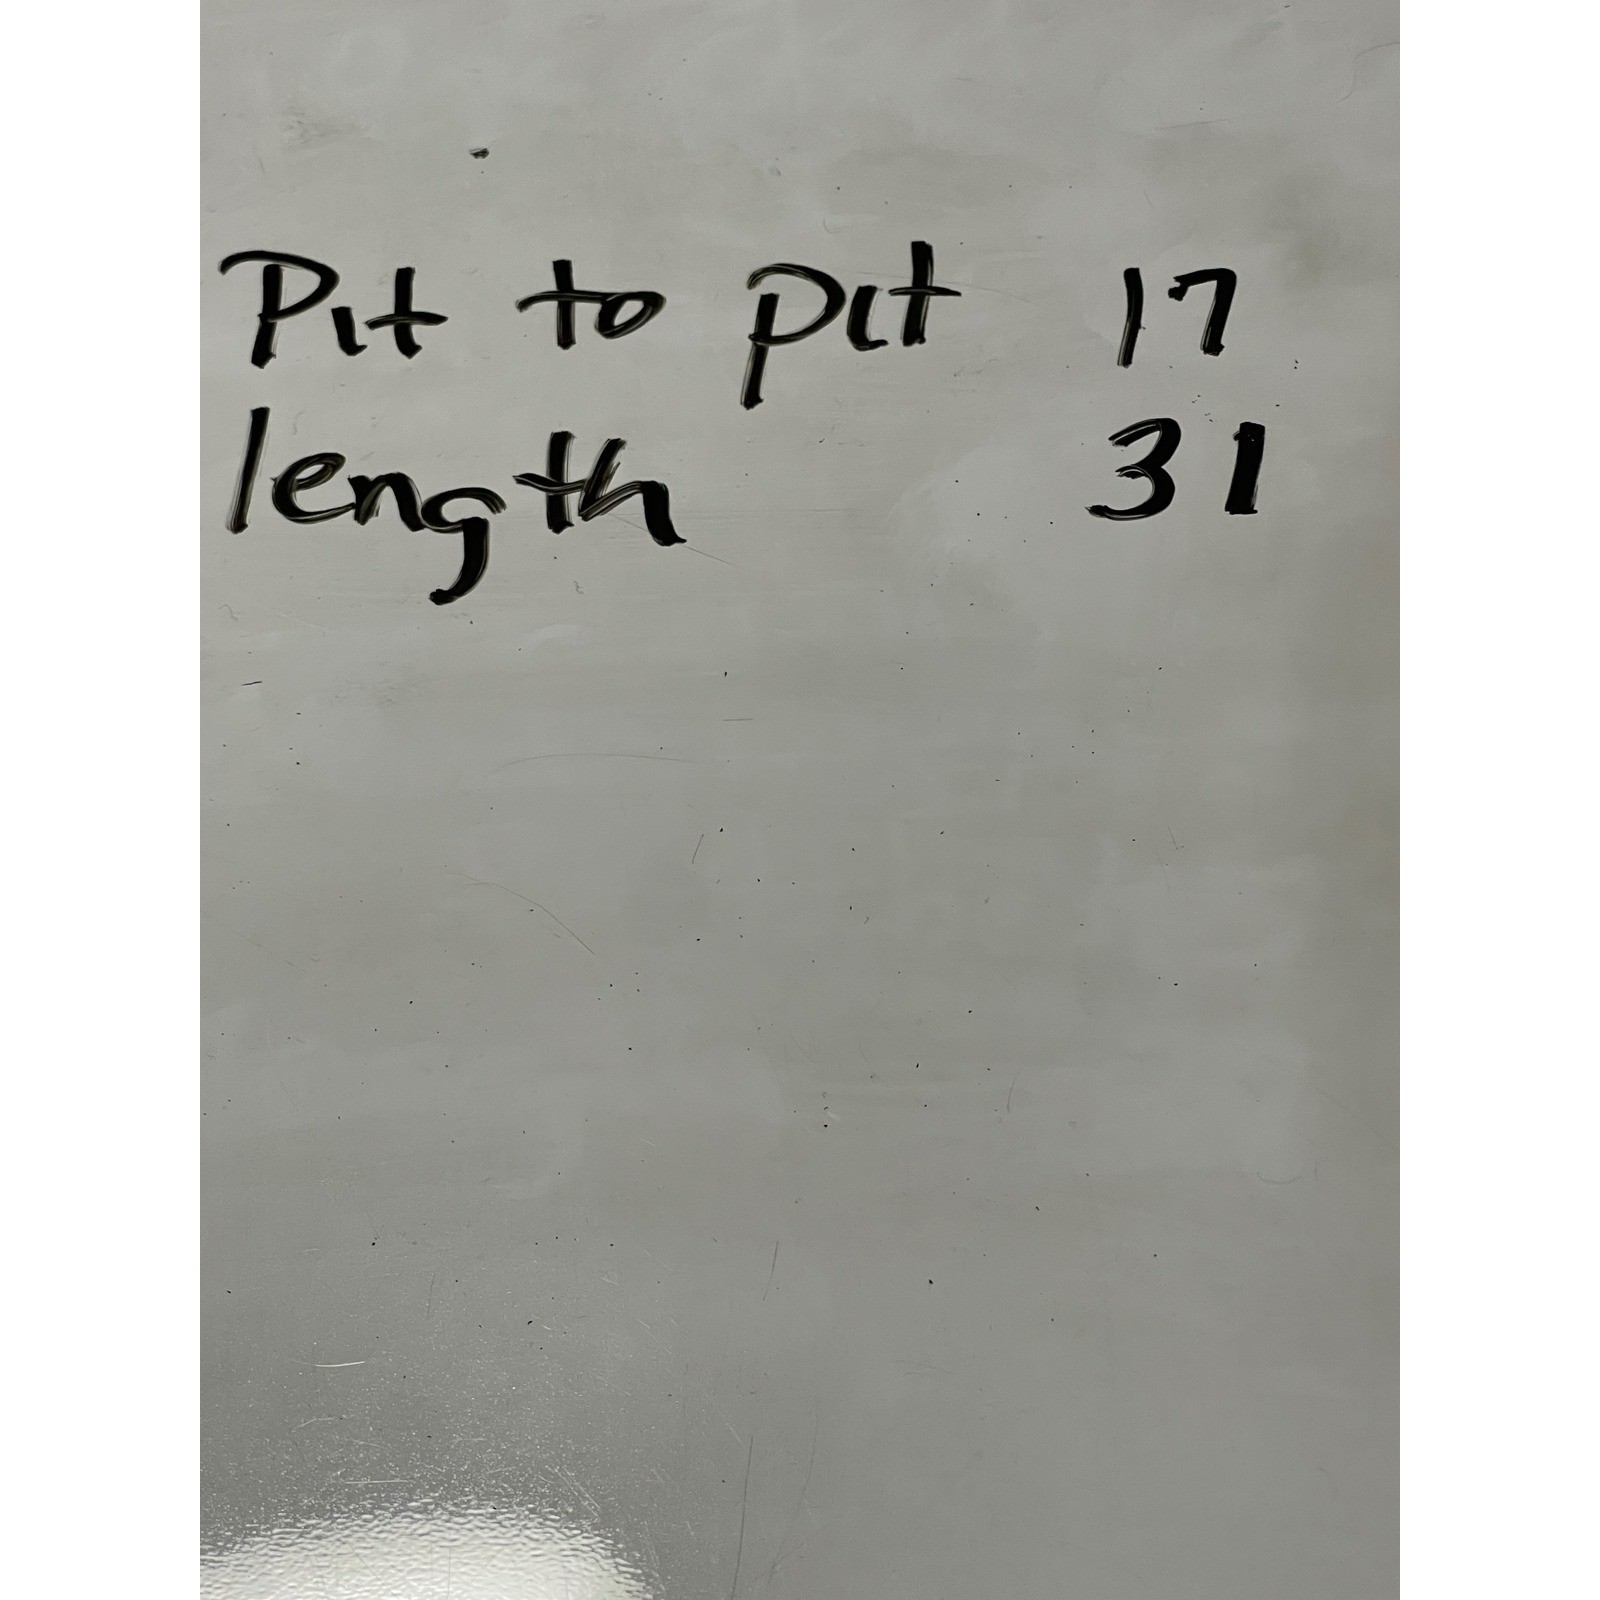 Pit to pit 17
length 31